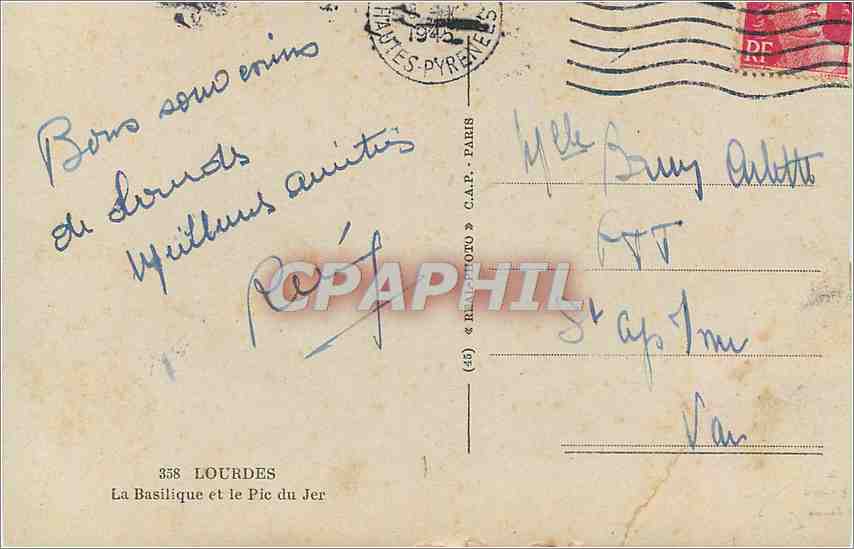 1945
HAUTES-PYRENEES
RF
Bons souvenirs
de Lourdes
Meilleures amitiés
CPAPHIL
Mlle Arlette
PTT
St
Var
(45) « REAL-PHOTO » C.A.P. - PARIS
358 LOURDES
La Basilique et le Pic du Jer